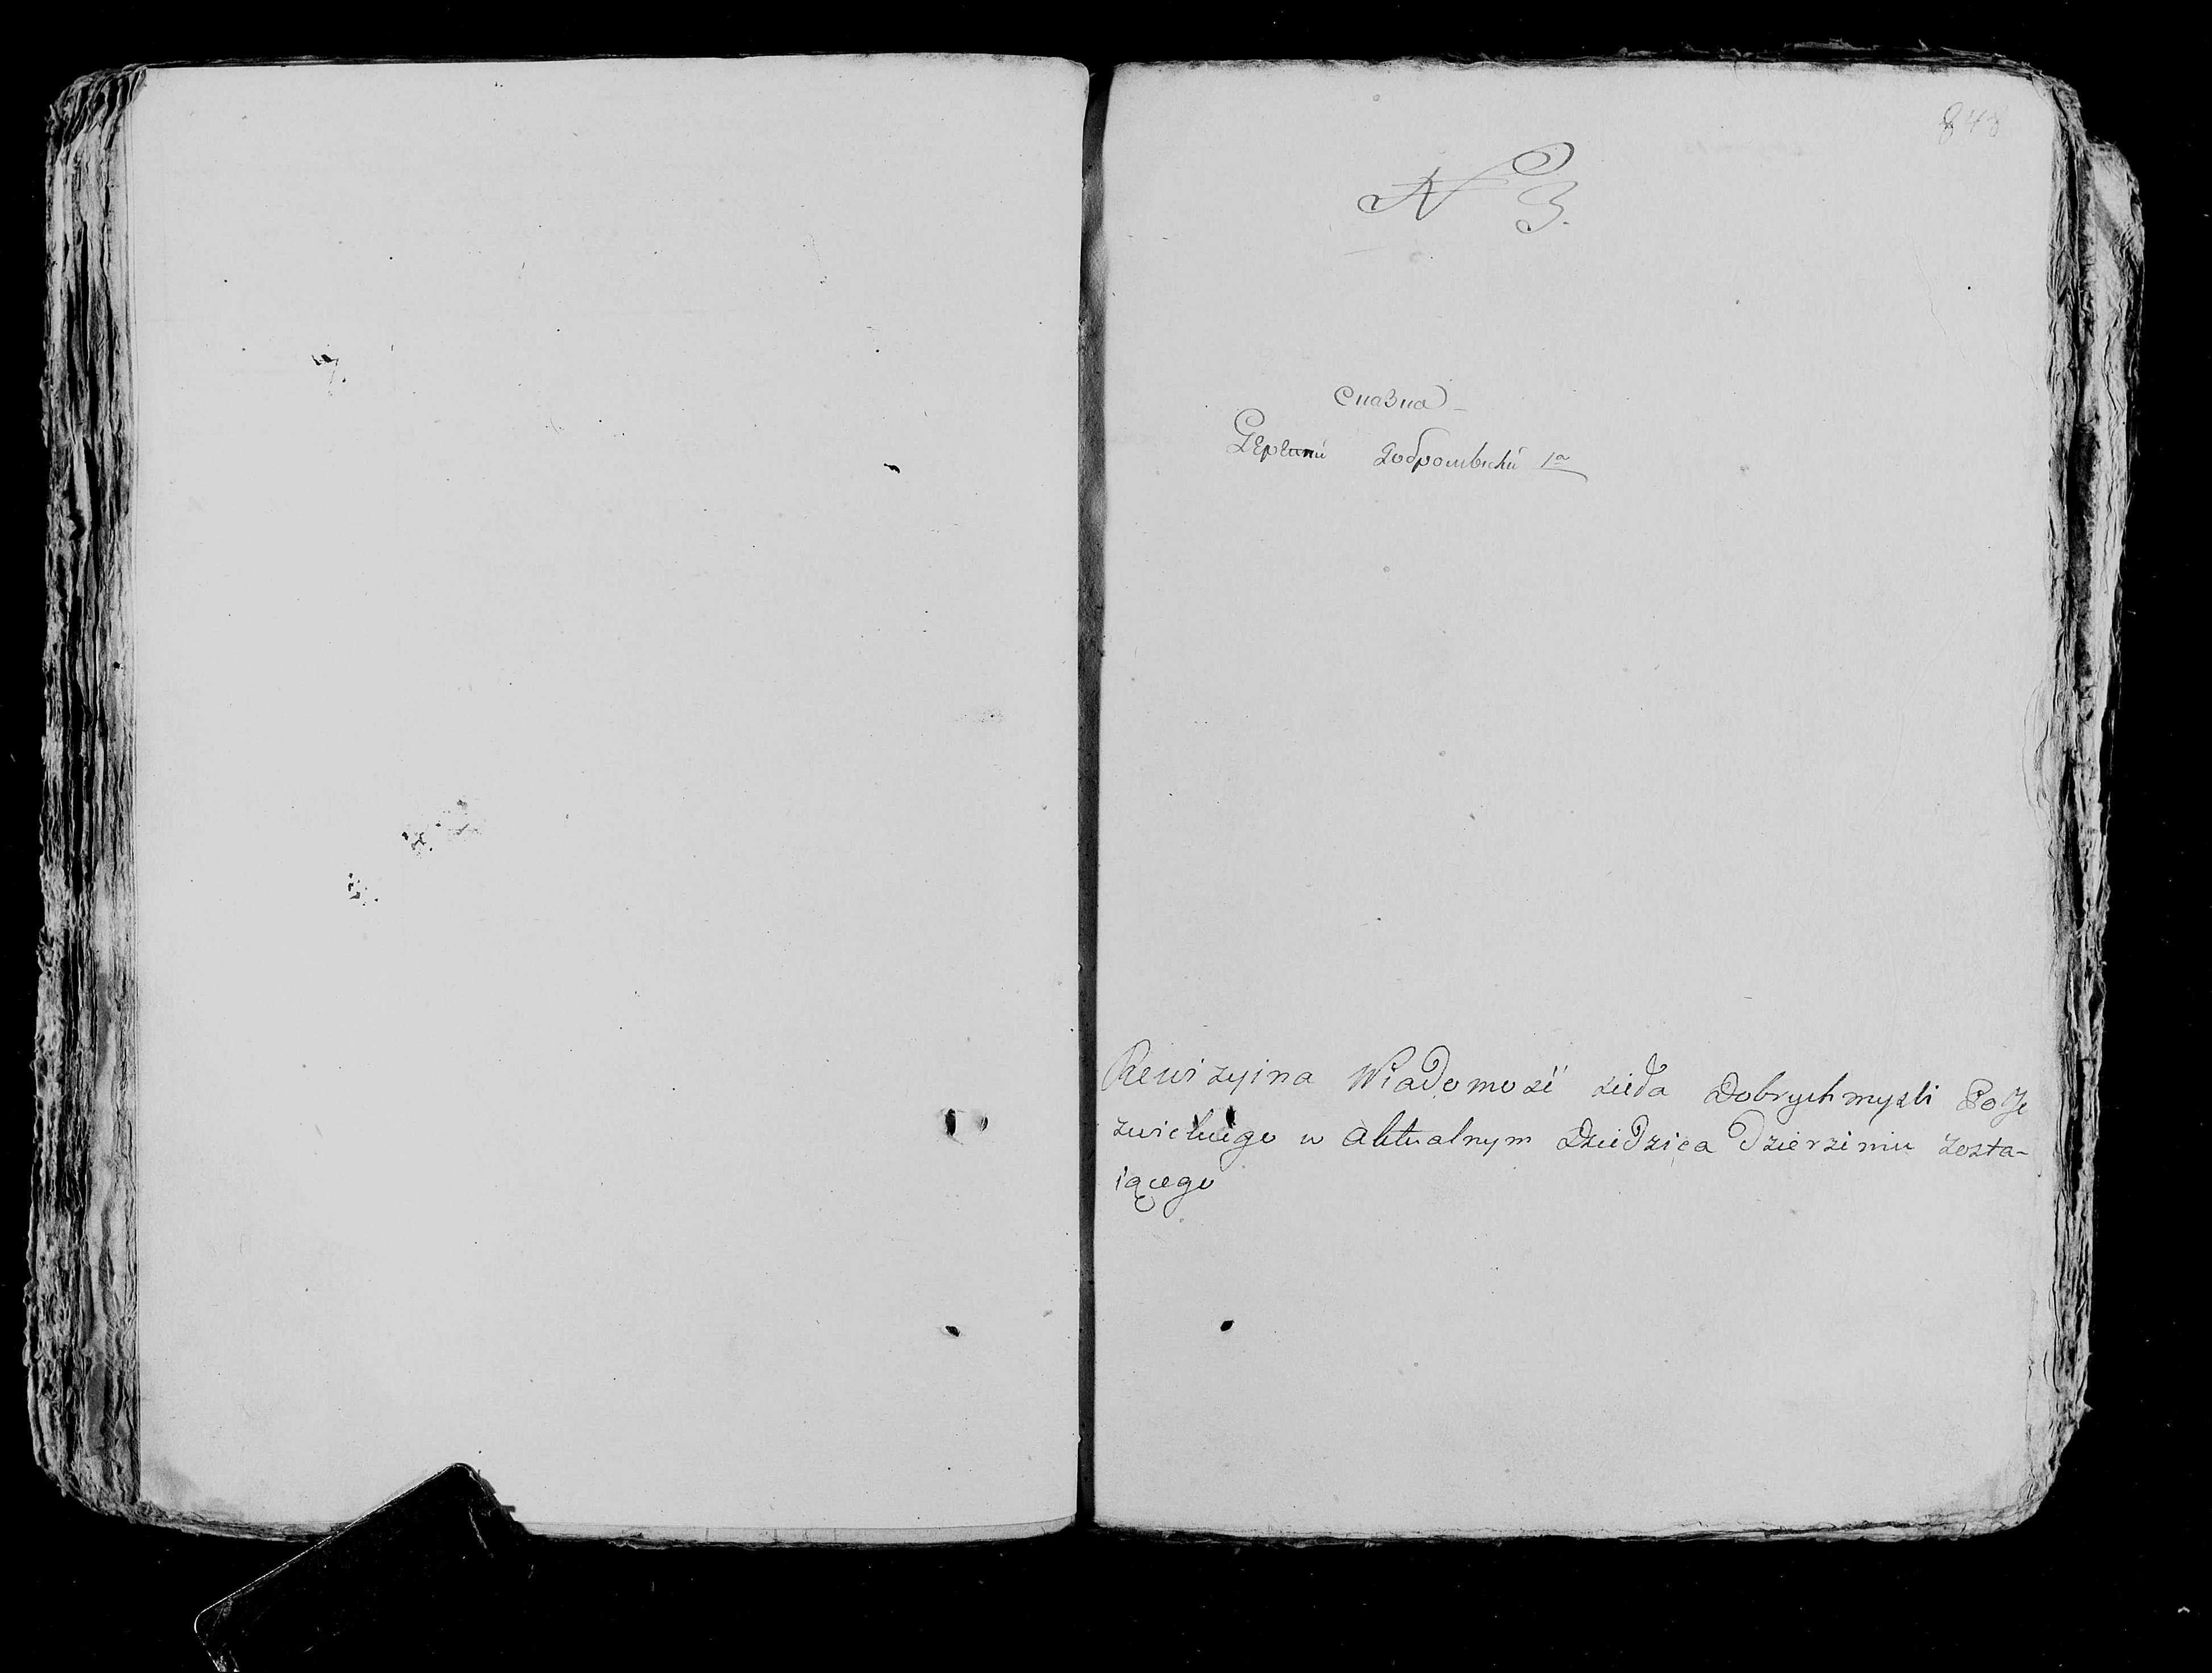 848
N 3.
Сказка
Деревни Добромысли 1а
Rewizyina Wiadomość sioła Dobrychmysli PoJe
zuickiego w aktualnym Dziedzica Dzierżeniu zosta-
iącego